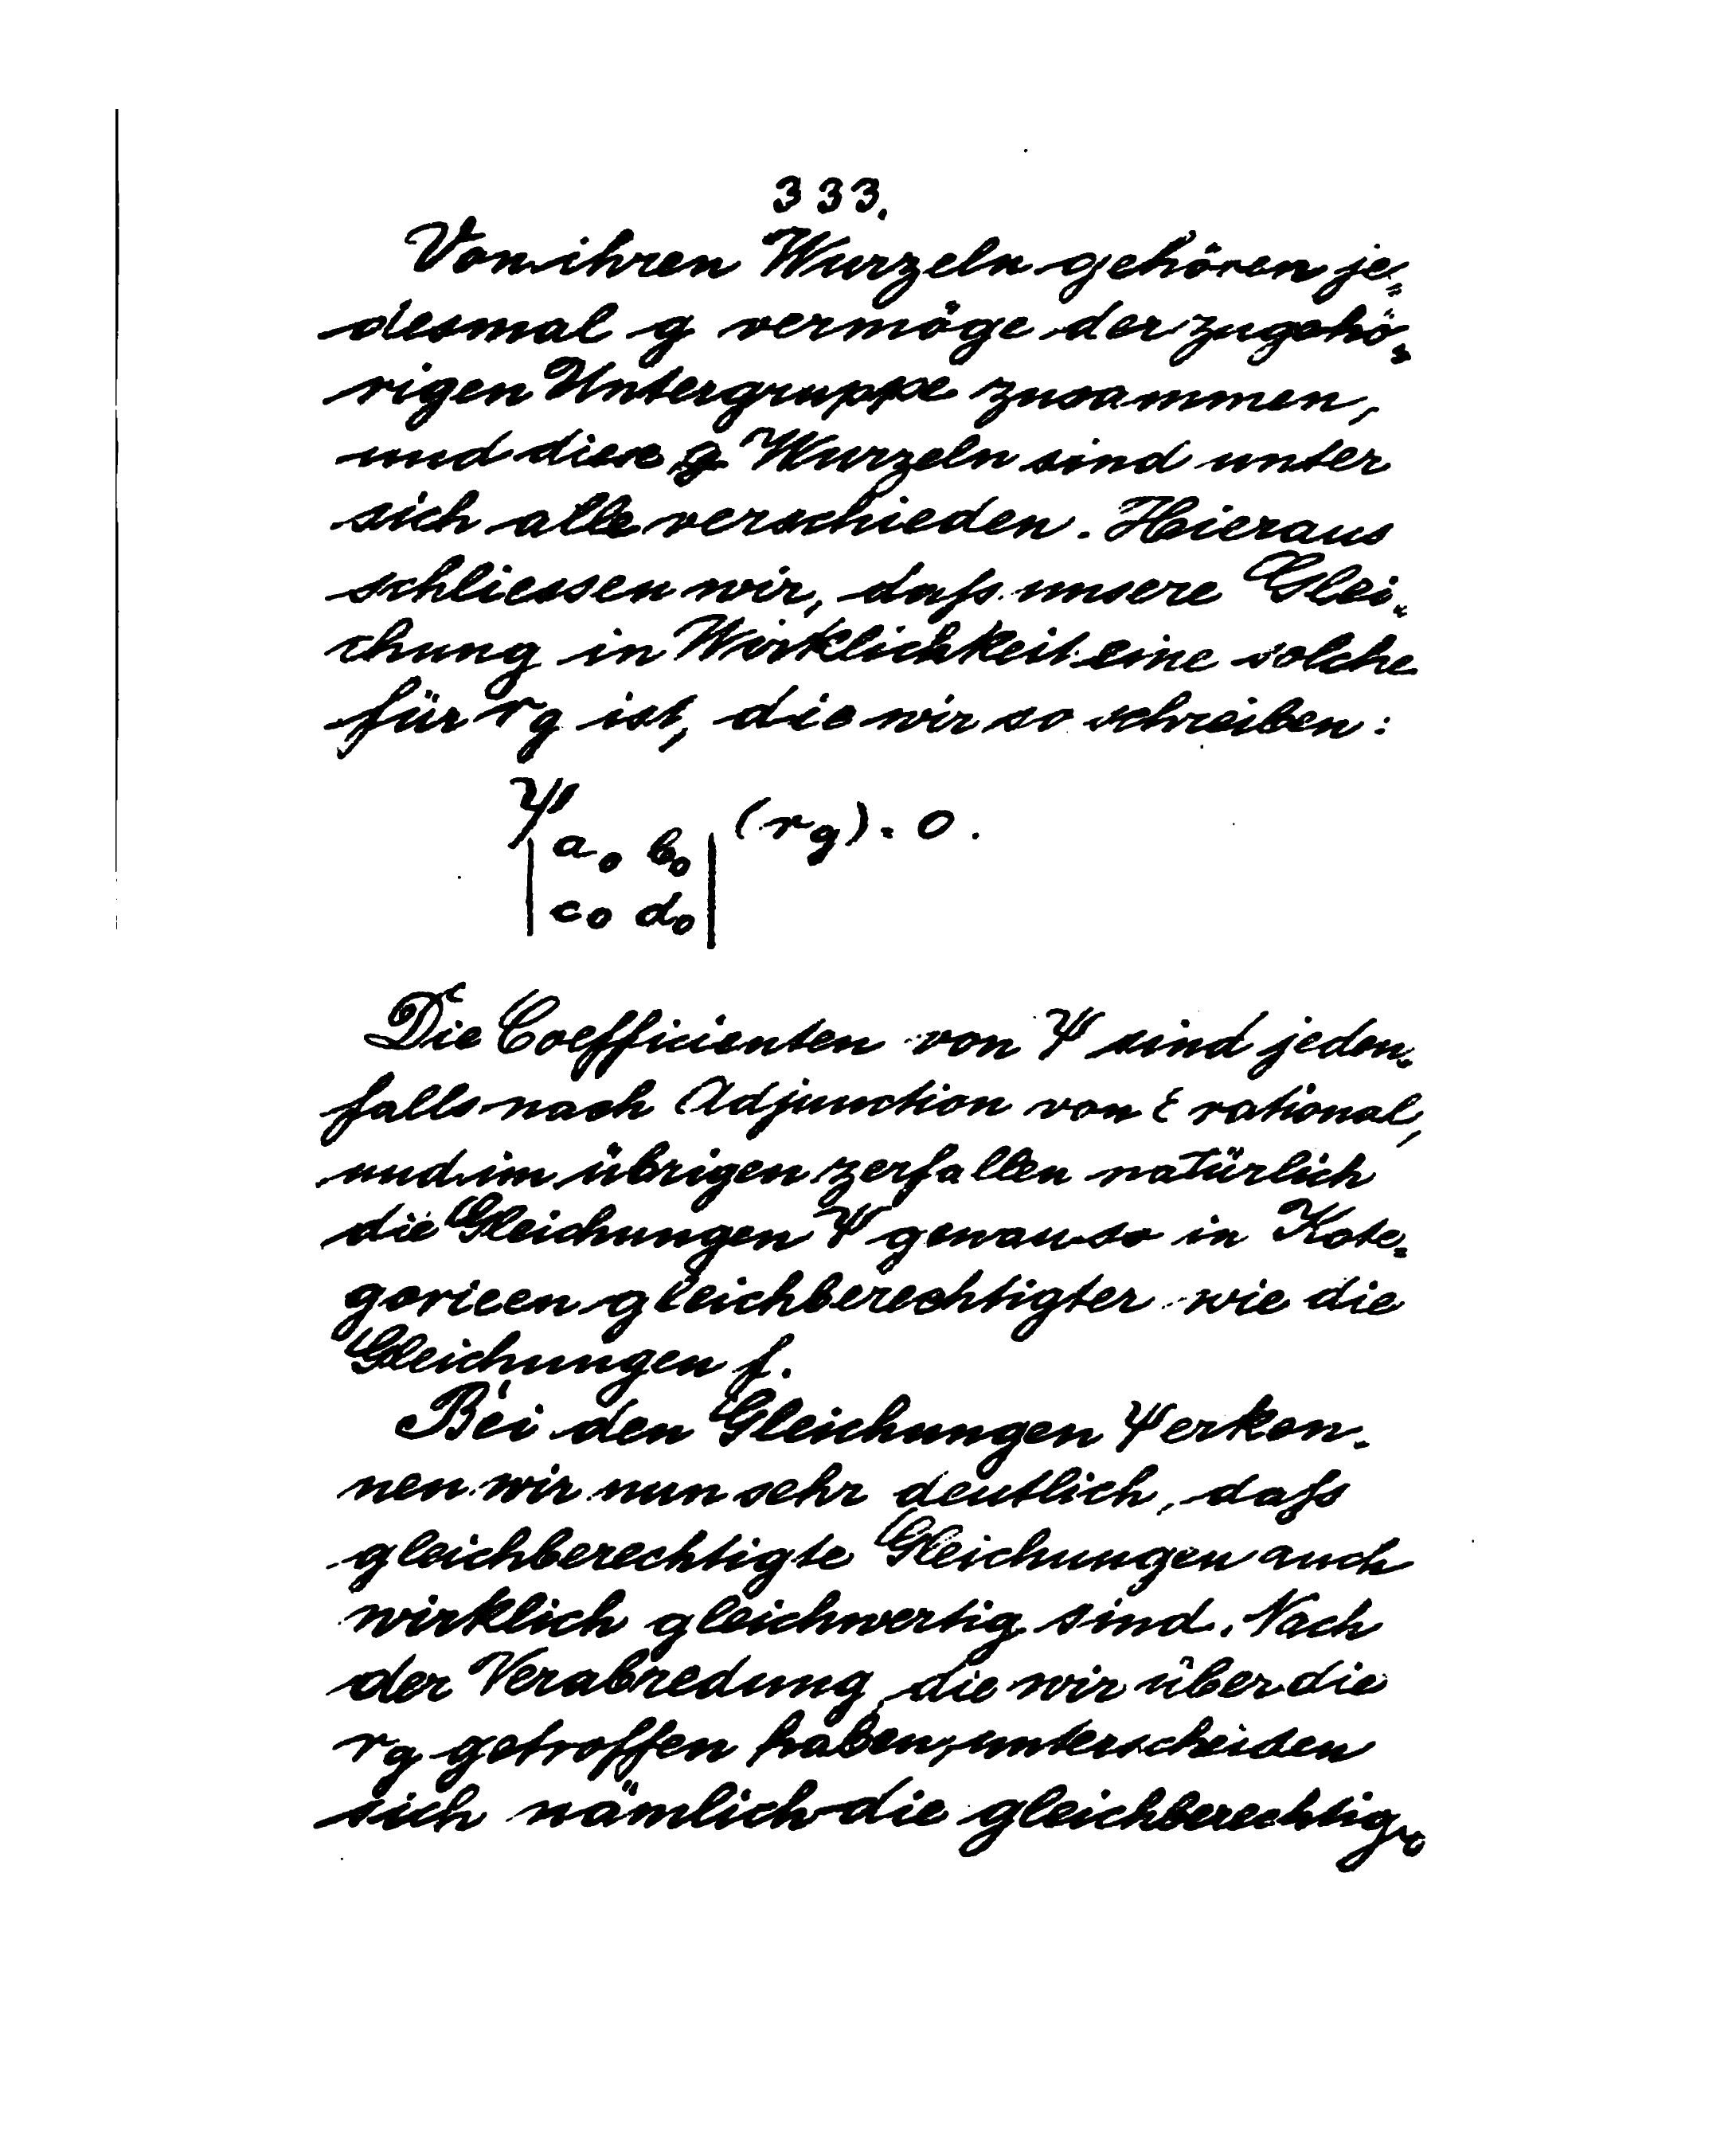 333.
Von ihren Wurzeln gehören je=
desmal g vermöge der zugehö=
rigen Untergruppe zusammen,
und diese g Wurzeln sind unter
sich alle verschieden. Hieraus
schliessen wir, daß unsere Glei=
chung in Wirklichkeit eine solche
für r_g ist, die wir so schreiben:
Ψ (r_g) = 0.
|a₀ b₀|
|c₀ d₀|
Die Coefficienten von Ψ sind jeden=
falls nach Adjunction von ε rational,
und im übrigen zerfallen natürlich
die Gleichungen Ψ genau so in Kate=
gorieen gleichberechtigter wie die
Gleichungen f.
Bei den Gleichungen Ψ erken=
nen wir nun sehr deutlich, daß
gleichberechtigte Gleichungen auch
wirklich gleichwertig sind. Nach
der Verabredung, die wir über die
r_g getroffen haben, unterscheiden
sich nämlich die gleichberechtig=